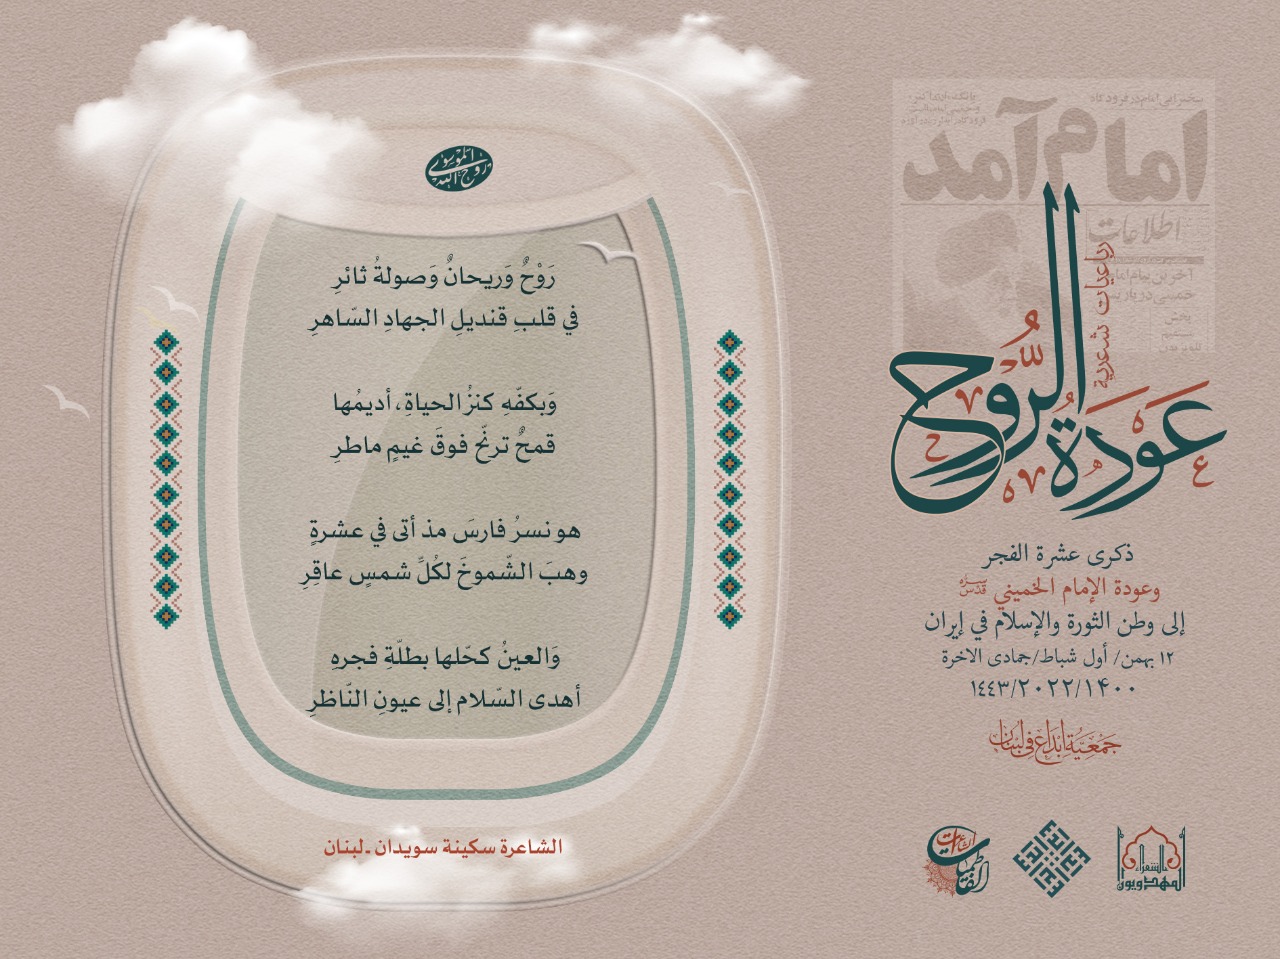 امام آمد
اطلاعات
رباعيات شعرية
عودة الرّوح
ذكرى عشرة الفجر
وعودة الإمام الخميني قدّس سرّه
إلى وطن الثورة والإسلام في إيران
١٢ بهمن/ أول شباط/جمادى الاخرة
١٤٤٣/٢٠٢٢/١۴٠٠
جمعيّة إبداع في لبنان
الشعراء
المهدويون
الشاعرات
الفاطميات
روح الله الموسوي
رَوْحٌ وَريحانٌ وَصولةُ ثائرِ
في قلبِ قنديلِ الجهادِ السّاهرِ
وَبكفّهِ كنزُ الحياةِ، أديمُها
قمحٌ ترنّح فوقَ غيمٍ ماطرِ
هو نسرُ فارسَ مذ أتى في عشرةٍ
وهبَ الشّموخَ لكُلِّ شمسٍ عاقِرِ
وَالعينُ كحّلها بطلّةِ فجرهِ
أهدى السّلام إلى عيونِ النّاظرِ
الشاعرة سكينة سويدان ـ لبنان